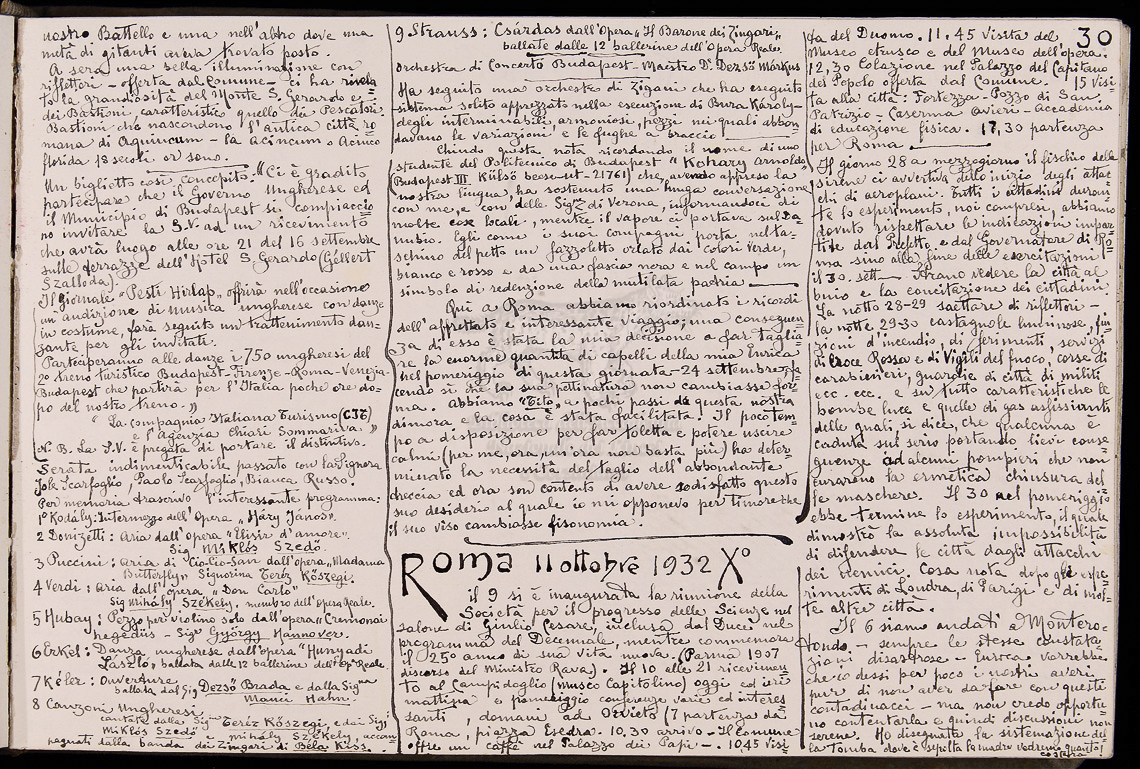 30
nostro Battello e una nell'altro dove una
metà di gitanti aveva trovato posto.
A sera una bella illuminazione con
riflettori – offerta dal Comune – ci ha rivela=
to la grandiosità del Monte S. Gerardo e
dei Bastioni, caratteristico quello dei Pescatori.
Bastioni che nascondono l'antica città ro
mana di Aquincum – la Acincum o Acinco
florida 18 secoli or sono.
Un biglietto così concepito. "Ci è gradito
partecipare che il Governo Ungherese ed
il Municipio di Budapest si compiaccio=
no invitare la S.V. ad un ricevimento
che avrà luogo alle ore 21 del 16 settembre
sulle terrazze dell'Hôtel S. Gerardo (Gellert
Szalloda).
Il giornale "Pesti Hirlap" offrirà nell'occasione
un'audizione di musica ungherese con danze
in costume, farà seguito un trattenimento dan=
zante per gli invitati.
Parteciperanno alle danze i 750 ungheresi del
2º treno turistico Budapest-Firenze-Roma-Venezia-
Budapest che partirà per l'Italia poche ore do=
po del nostro treno."
"La compagnia Italiana Turismo (CIT)
e l'Agenzia Chiari Sommariva."
N.B. La S.V. è pregata di portare il distintivo.
Serata indimenticabile passata con la Signora
Jole Scarfoglio, Paolo Scarfoglio, Bianca Russo.
Per memoria trascrivo l'interessante programma:
1º Kodály: Intermezzo dell'Opera "Háry János".
2 Donizetti: Aria dall'opera "Elisir d'amore".
Sig Miklós Szedő.
3 Puccini: aria di Cio-Cio-San dall'opera "Madama
Butterfly" Signorina Teréz Kőszegi.
4 Verdi: Aria dall'opera "Don Carlo"
Sig Mihály Székely, membro dell'Opera Reale.
5 Hubay: Pezzo per violino solo dall'opera "Cremonai
hegedüs – Sigr György Hannover.
6 Erkel: Danza ungherese dall'opera "Hunyadi
László, ballata dalle 12 ballerine dell'Op Reale
7 Kéler: Ouverture
ballata dal Sig Dezső Brada e dalla Signa
Manci Hahn.
8 Canzoni Ungheresi,
cantate dalla Signa Teréz Kőszegi, e dai Sigj
Miklós Szedő e Mihály Székely, accom
pagnati dalla banda dei Zingari di Béla Kiss.
9 Strauss: Csárdas dall'Opera "Il Barone dei Zingari",
ballate dalle 12 ballerine dell'Opera Reale.
Orchestra di Concerto Budapest – Maestro Dr Dezső Márkus
Ha seguito una orchestra di Zigani che ha eseguito
sistema solito apprezzato nella esecuzione di Bura Károly –
degli interminabili armoniosi pezzi nei quali abbon=
davano le variazioni e le fughe a braccio
Chiudo questa nota ricordando il nome di uno
studente del Politecnico di Budapest "Kohary Arnoldo
(Budapest III. Külső becse-ut-21761) che, avendo appreso la
nostra lingua, ha sostenuto una lunga conversazione
con me, e con delle Sigre di Verona, informandoci di
molte cose locali, mentre il vapore ci portava sul Da=
nubio. Egli come i suoi compagni porta nel ta=
schino del petto un fazzoletto orlato dai colori verde,
bianco e rosso e da una fascia nera e nel campo un
simbolo di redenzione della mutilata patria
Qui a Roma abbiamo riordinato i ricordi
dell'affrettato e interessante viaggio; una conseguen
za di esso è stata la mia decisione a far taglia=
re la enorme quantità di capelli della mia Enrica
nel pomeriggio di questa giornata – 24 settembre – fa=
cendo sì che la sua pettinatura non cambiasse for=
ma. Abbiamo "Tito" a pochi passi da questa nostra
dimora e la cosa è stata facilitata. Il poco tem=
po a disposizione per far toletta e potere uscire
calmi (per me, ora, un'ora non basta più) ha deter
minato la necessità del taglio dell'abbondante
treccia ed ora son contento di avere sodisfatto questo
suo desiderio al quale io mi opponevo per timore che
il suo viso cambiasse fisonomia.
Roma 11 ottobre 1932 Xº
il 9 si è inaugurata la riunione della
Società per il progresso delle Scienze nel
salone di Giulio Cesare, inclusa dal Duce nel
programma del Decennale, mentre commemora
il 25º anno di sua vita nuova. (Parma 1907
discorso del Ministro Rava). Il 10 alle 21 ricevimen
to al Campidoglio (Museo Capitolino) oggi ed ieri
mattina e pomeriggio conferenze varie ed interes
santi, domani ad Orvieto (7 partenza da
Roma, piazza Esedra. 10,30 arrivo – Il Comune
offre un caffè nel Palazzo dei Papi –. 10,45 Visi
ta del Duomo. 11,45 Visita del
Museo etrusco e del Museo dell'opera.
12,30 Colazione nel Palazzo del Capitano
del Popolo offerta dal Comune. 15 Visi=
ta alla città: Fortezza – Pozzo di San
Patrizio – Caserma avieri – Accademia
di educazione fisica. 17,30 partenza
per Roma
Il giorno 28 a mezzogiorno il fischio delle
sirene ci avvertiva dello inizio degli attac=
chi di aeroplani. Tutti i cittadini duran=
te lo esperimento, noi compresi, abbiamo
dovuto rispettare le indicazioni impar=
tite dal Prefetto e dal Governatore di Ro=
ma sino alla fine delle esercitazioni
il 30. sett – Strano vedere la città al
buio e la concitazione dei cittadini
La notte 28-29 saettare di riflettori –
la notte 29-30 castagnole luminose, fin=
zioni d'incendio, di ferimenti, servizi
di Croce Rossa e di Vigili del fuoco, corse di
carabinieri, guardie di città di militi
ecc. ecc. e su tutto caratteristiche le
bombe luce e quelle di gas asfissianti
delle quali si dice, che qualcuna è
caduta sul serio portando lievi conse
guenze ad alcuni pompieri che non
curarono la ermetica chiusura del=
le maschere. Il 30 nel pomeriggio
ebbe termine lo esperimento, il quale
dimostrò la assoluta impossibilità
di difendere le città dagli attacchi
dei nemici. Cosa nota dopo gli espe=
rimenti di Londra, di Parigi e di mol=
te altre città.
Il 6 siamo andati a Montero=
tondo – sempre le stesse constata=
zioni disastrose – Enrica vorrebbe
che io dessi per poco i nostri averi
pur di non aver da fare con questi
contadinacci – ma non credo opportu
no contentarla e quindi discussioni non
serene. Ho disegnata la sistemazione del=
la tomba dove è sepolta la madre vedremo quanto
costerà!